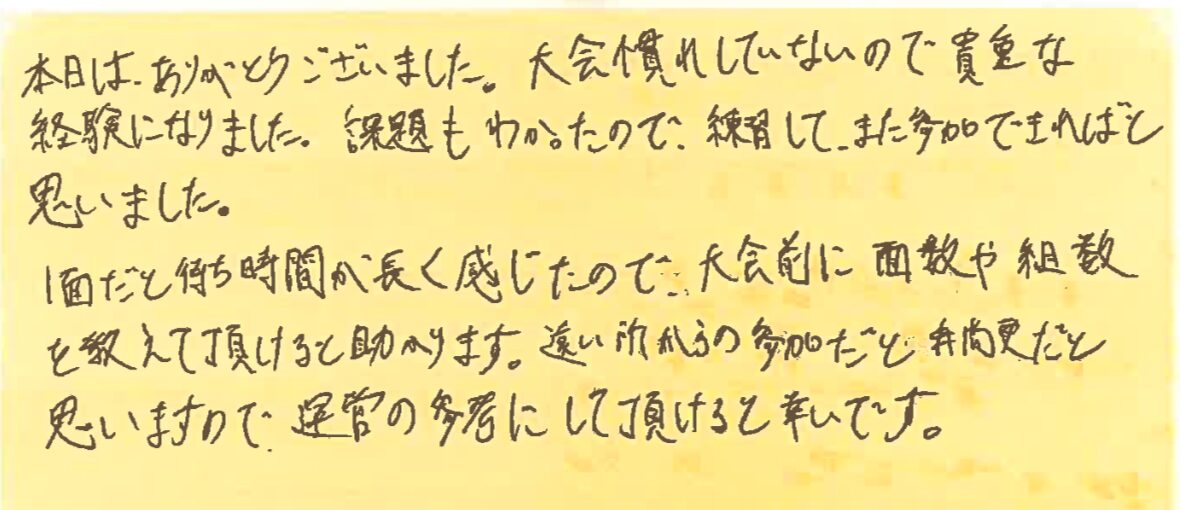 本日は、ありがとうございました。大会慣れしていないので貴重な
経験になりました。課題もわかったので、練習して、また参加できればと
思いました。
1面だと待ち時間が長く感じたので、大会前に面数や組数
を教えて頂けると助かります。遠い所からの参加だと尚更だと
思いますので、運営の参考にして頂けると幸いです。